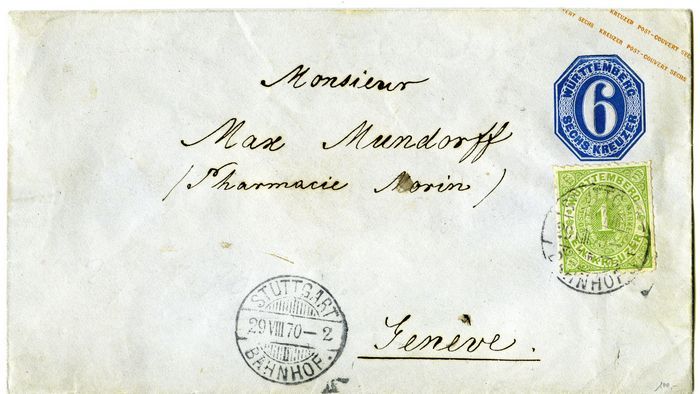 KREUZER POST-COUVERT SEC
VERT SECHS KREUZER POST-COUVERT SECHS
WÜRTTEMBERG
6
SECHS KREUZER
Monsieur
Max Mundorff
(Pharmacie Morin)
WÜRTTEMBERG
1
BAHNHOF
STUTTGART
29 VIII 70 – 2
BAHNHOF.
Genève.
100,-